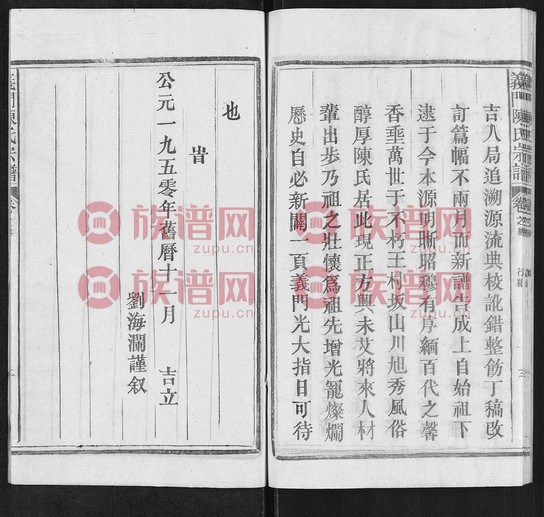 義門陳氏宗譜
卷之
吉人局追溯源流典校訛錯整飭丁稿改
訂篇幅不兩月而新譜告成上自始祖下
逮于今本源明晰昭穆有序緬百代之馨
香垂萬世于不朽王村坂山川旭秀風俗
醇厚陳氏居此現正方興未艾將來人材
輩出步乃祖之壯懷爲祖先增光寵燦爛
歷史自必新闢一頁義門光大指日可待
也
旹
公元一九五零年舊曆十 月 吉立
劉海瀾謹叙
義門陳氏宗譜
族谱网
zupu.cn
族谱网
zupu.cn
族谱网
zupu.cn
族谱网
zupu.cn